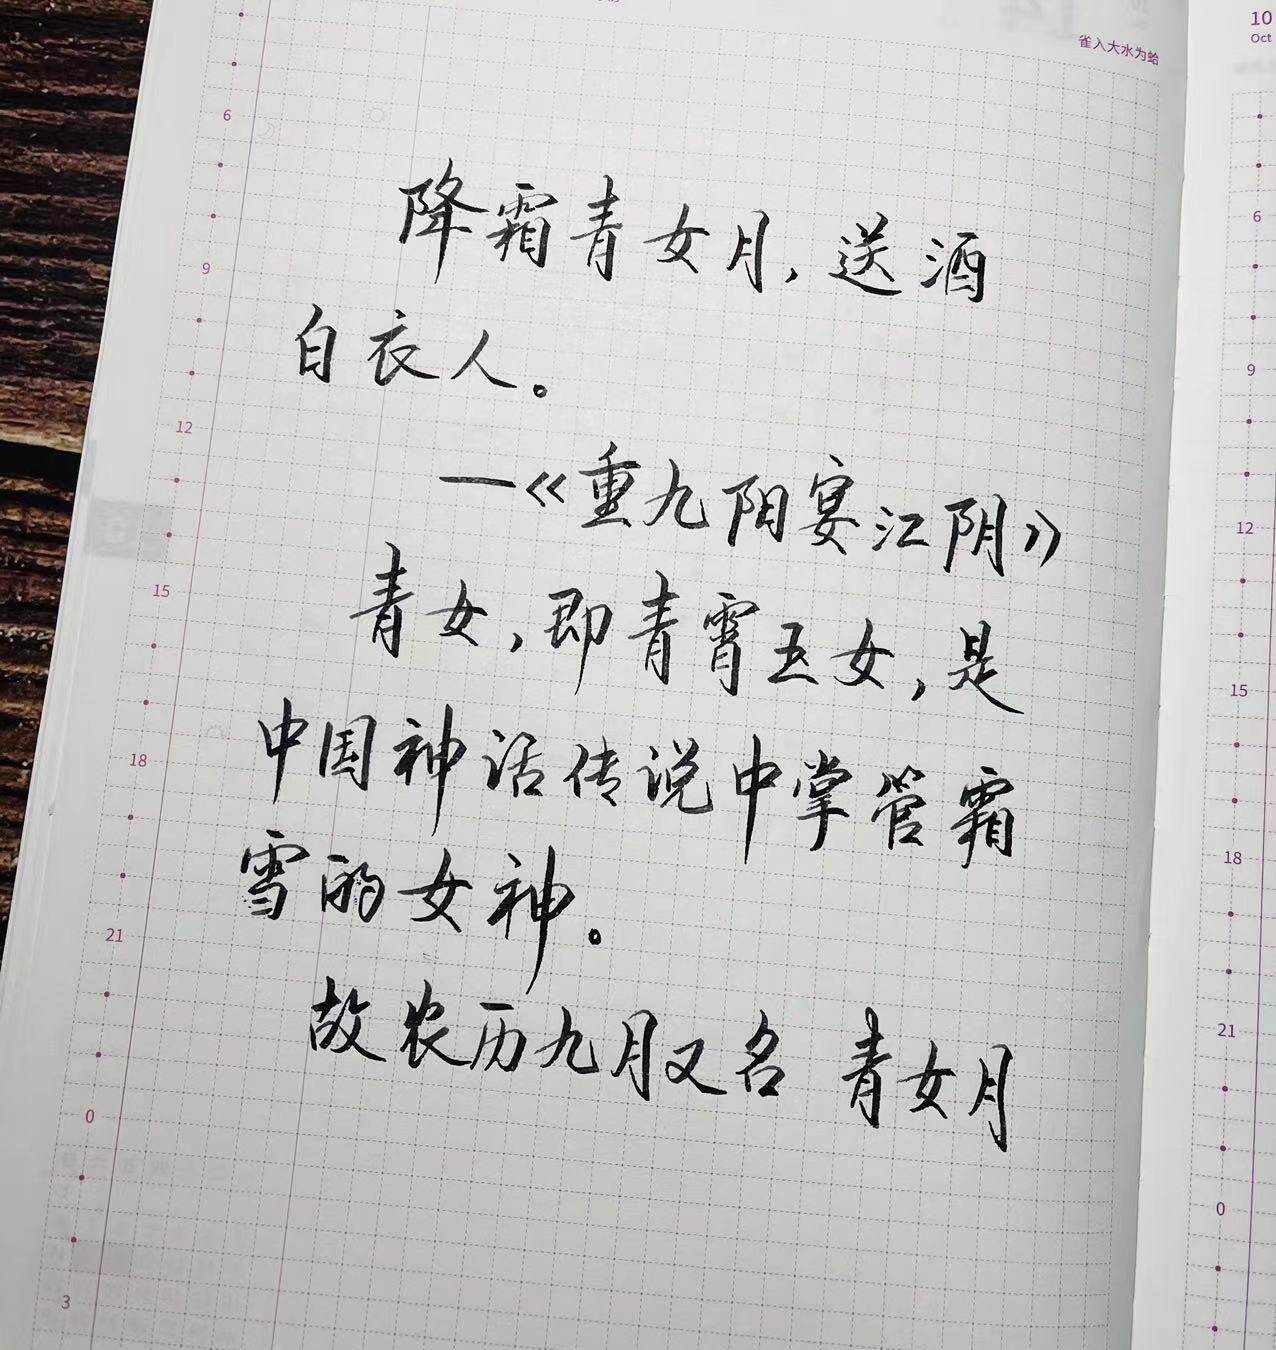 雀入大水为蛤
10
Oct
降霜青女月，送酒
白衣人。
一《重九阳宴江阴》
青女，即青霄玉女，是
中国神话传说中掌管霜
雪的女神。
故农历九月又名 青女月
6
9
12
15
18
21
0
3
6
9
12
15
18
21
0